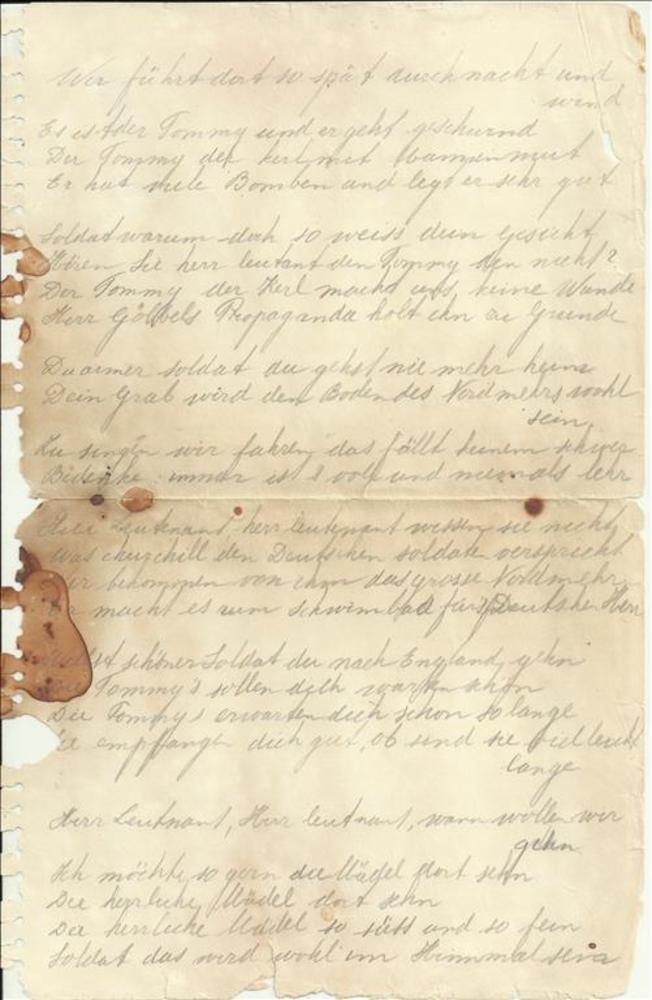 Wer führt dort so spät durch nacht und
wind
Es ist der Tommy und er geht geschwind
Der Tommy der kerl mit
Er hat viele Bomben und legt er sehr gut
Soldat warum doch so weiss dein gesicht
Hören Sie herr leutant den Tommy den nicht?
Der Tommy der Kerl macht uns keine Wunde
Herr Göbbels Propaganda holt ihn zu Grunde
Du armer soldat du gehst nie mehr heim
Dein Grab wird den Boden des Nordmehrs wohl
sein
Zu singen wir fahren das fällt keinem schwer
Bedenke immer ist s voll und niemals lerr
Herr Leutenant herr leutenant wissen sie nicht
was churchill den Deutschen soldate versprecht
bekommen von ihm das grosse Nordmehr
macht es zum schwimbad fürs Deutshe Herr
schöner Soldat du nach England gehn
Tommy's sollen dich warten schon
Die Tommy's erwarten dich schon so lange
empfangen dich gut, ob sind sie vielleicht
lange
Herr Leutnant, Herr leutnant, wann wollen wir
gehn
Ich möchte so gern die Mädel dort sehn
Die herrliche Mädel dort sehn
Die herrliche Mädel so süss und so fein
Soldat das wird wohl im Himmel sein